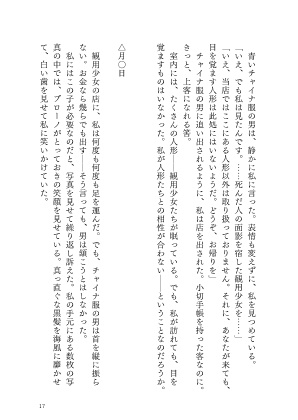 青いチャイナ服の男は、静かに私に言った。表情も変えずに、私を見つめている。
「いえ、でも私は見たんです。……死んだ人の面影を宿した観用少女を……」
「いえ、当店ではここにある人形以外は取り扱っておりません。それに、あなたが来ても、
目を覚ます人形は此処にはいないようだ。どうぞ、お帰りを」
チャイナ服の男に追い出されるように、私は店を出された。小切手帳を持った客なのに。
きっと、上客になれる筈。
室内には、たくさんの人形――観用少女たちが眠っている。でも、私が訪れても、目を
覚ますものはいなかった。私が人形たちとの相性が合わない――ということなのだろうか。
△月〇日
観用少女の店に、私は何度も何度も足を運んだ。でも、チャイナ服の男は首を縦に振ら
ない。お金なら幾らでも出す。そう言っても、男は頷こうとはしなかった。
私にはこの子が必要なのだと、写真を見せて繰り返し訴えた。私の手元にある数枚の写
真の中では、ブローノがとっておきの笑顔を見せている。真っ直ぐな黒髪を海風に靡かせ
て、白い歯を見せて私に笑いかけていた。
17